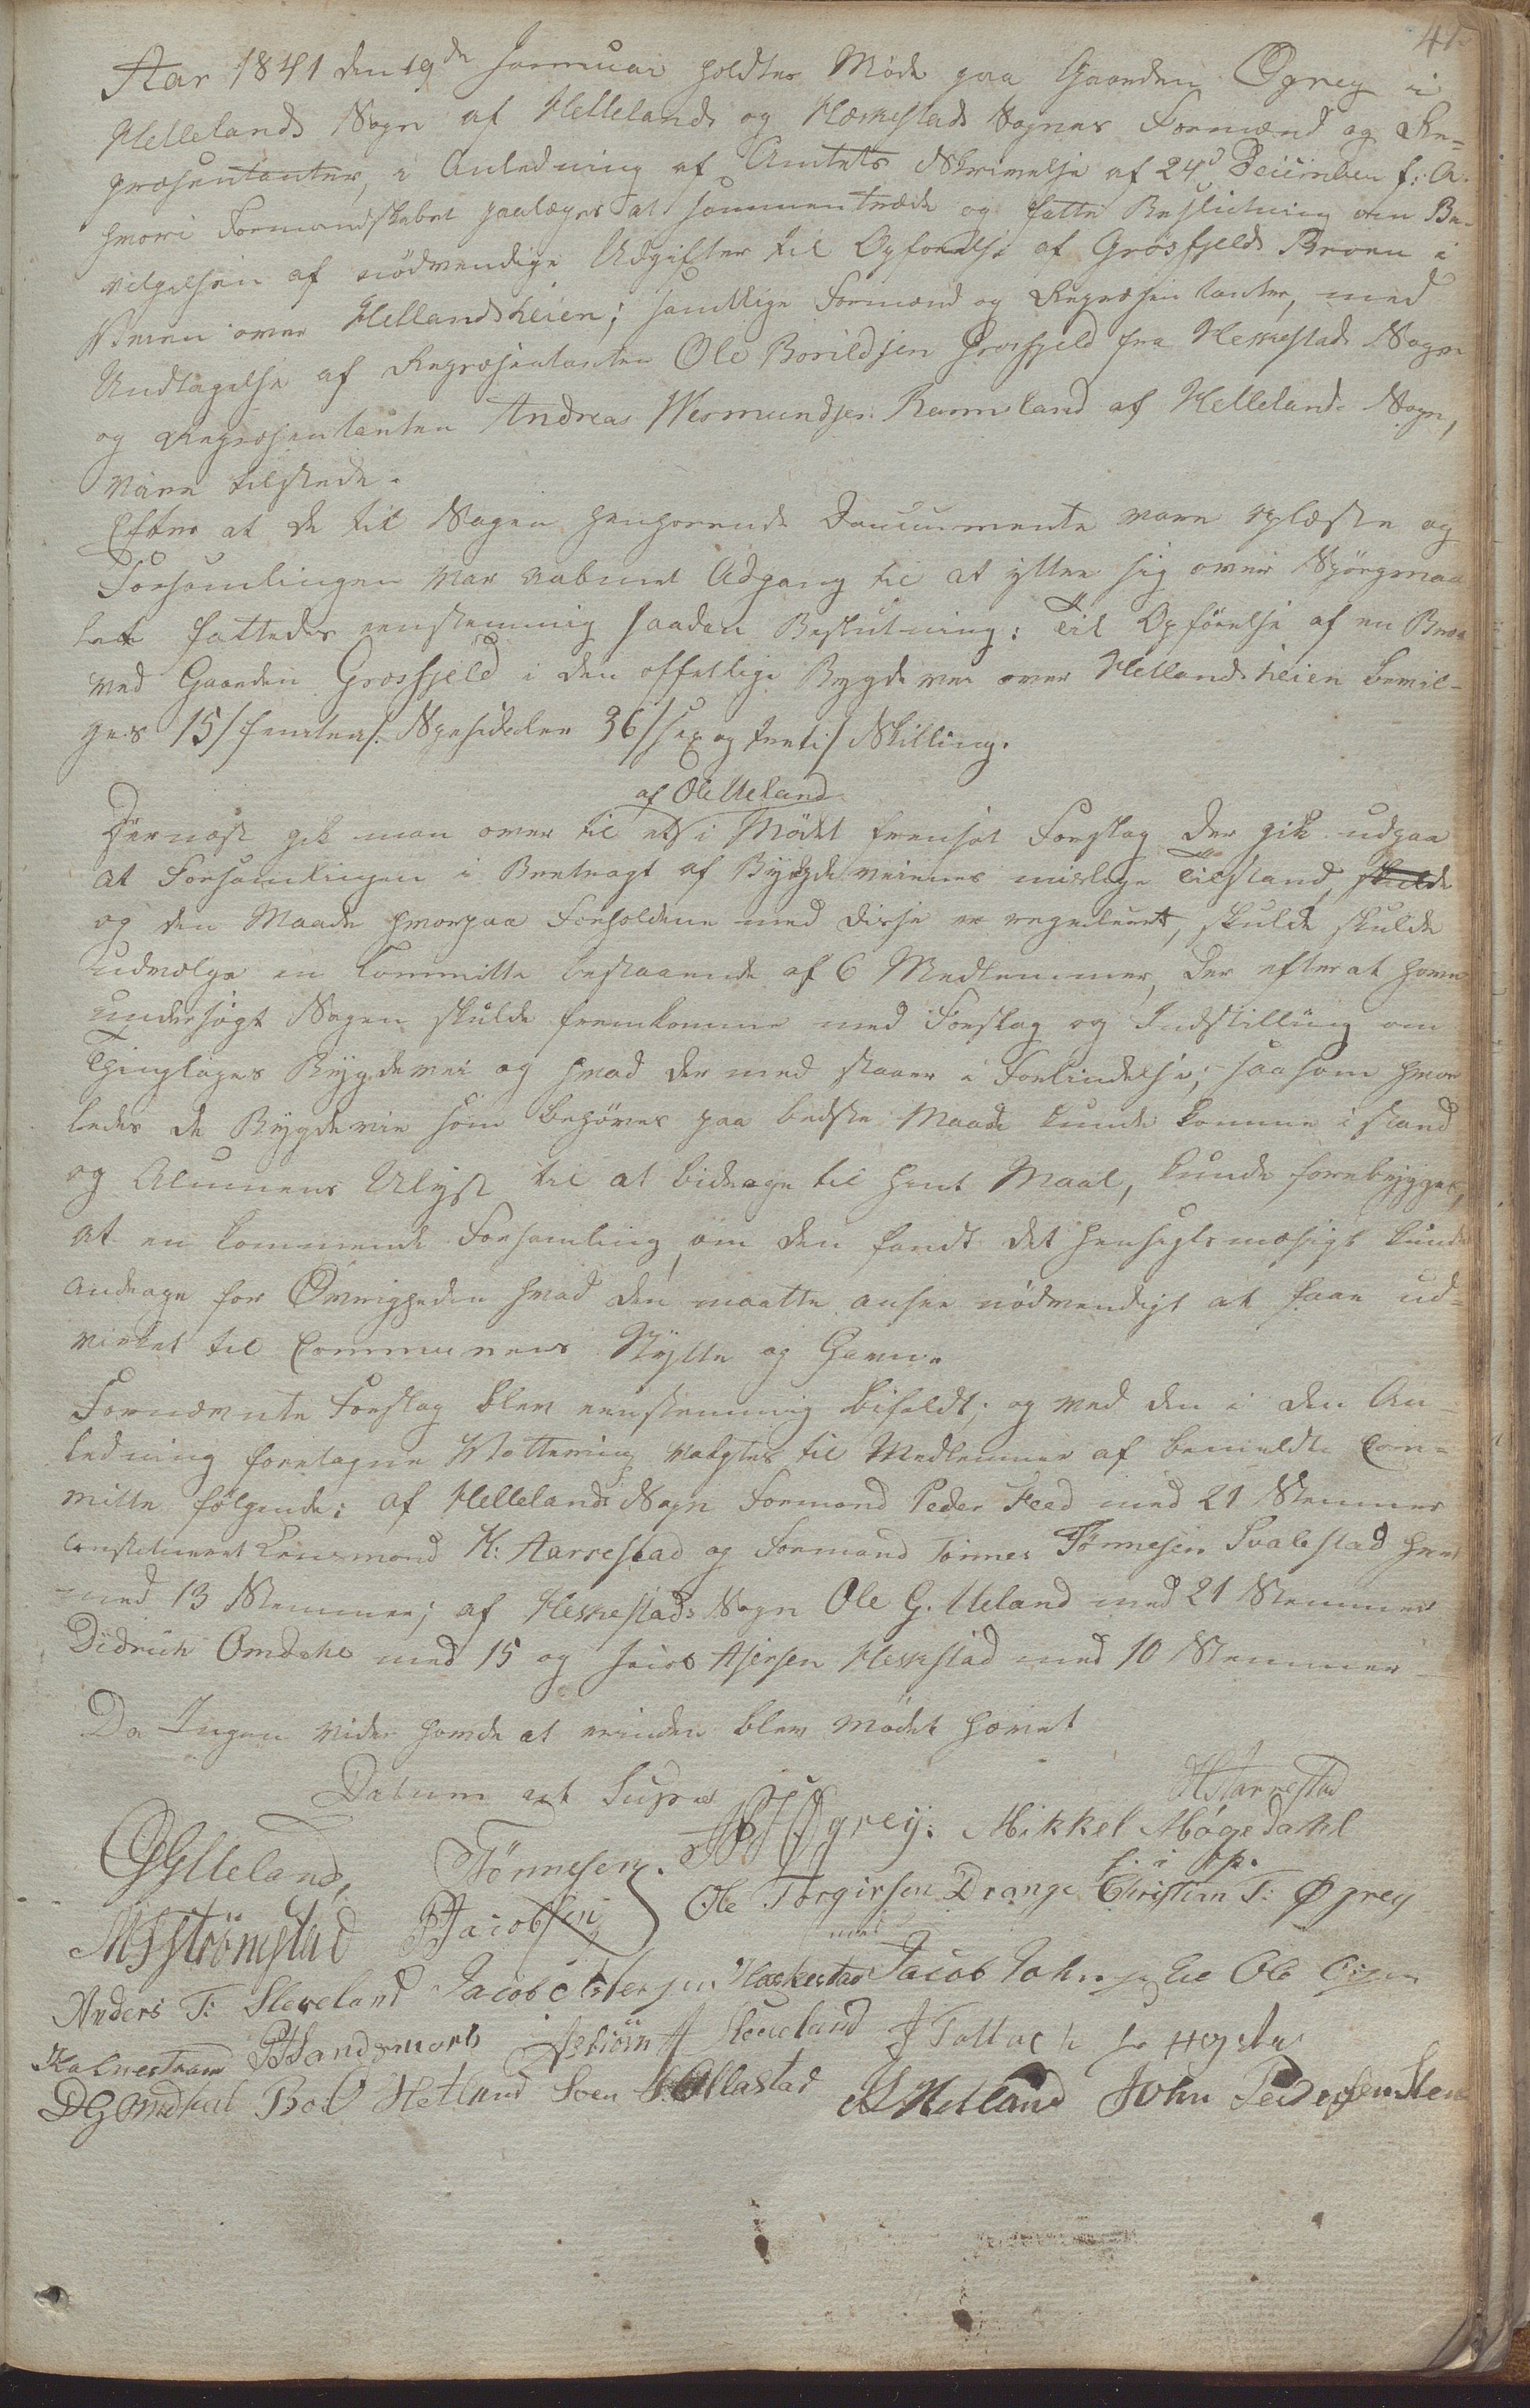 Aar 1841 den 19de Januar holdtes Møde paa Gaarden Øgrey i
Hellelands Sogn af Hellelands og Heskestads Sognes Formænd og Re=
præsentanter, i Anledning af Amtets Skrivelse af 24d December f: A.
hvori Formandskabet paalægges at sammentræde og fatte Beslutning om Be-
vilgelsen af nödvendige Udgifter til Opförelse af Grösfjelds Broen i
Veien over Hellandsheien; samtlige Formænd og Repræsentanter, med
Undtagelse af Repræsentanten Ole Borildsen Grosfjeld fra Heskestads Sogn
og Repræsentanten Andreas Wermundsen Ramsland af Hellelands Sogn,
vare tilstede.
Efter at de til Sagen henhørende Documenter vare oplæste og
Forsamlingen var aabnet Adgang til at yttre sig over Spörgsmaa
let fattedes eenstemmig saadan Beslutning: Til Opförelse af en Broe
ved Gaarden Grosfjeld i den offetlige Bygdevei over Hellandsheien bevil-
ges 15/femten/. Speciedaler 36/sex og treti/ Skilling.
af Ole Ueland
Dernæst gik man over til et i Mödet fremsat Forslag der gik udpaa
at Forsamlingen i Betragt af Bygdeveienes mislige Tilstand, skulde
og den Maade hvorpaa Forholdene med disse er reguleert, skulde skulde
udvælge en Committe bestaaende af 6 Medlemmer, der efter at have
undersögt Sagen skulde fremkomme med Forslag og Indstilling om
Thinglagets Bygdevei og hvad der med staaer i Forbindelse; saasom hvor
ledes de Bygdeveie som behöves paa bedste Maade kunde komme i stand
og Almuens Ulyst til at bidrage til hint Maal, kunde forebygges,
at en kommende Forsamling, om den fandt det hensigtsmæsigt kunde
andrage for Övrigheden hvad den maatte ansee nödvendigt at faae ud=
virket til Communens Nytte og Gavn.
Fornævnte Forslag blev eenstemmig bifaldt; og ved den i den An-
ledning foretagne Vottering valgtes til Medlemmer af bemeldte Com=
mitte følgende: af Hellelands Sogn Formand Peder Feed med 21 Stemmer
constitueret Lensmand K: Aarrestad og Formand Tönnes Tönnesen Svalestad hver
med 13 Stemmer; af Heskestads Sogn Ole G. Ueland med 21 Stemmer
Didrich Omdahl med 15 og Jacob Asersen Heskstad med 10 Stemmer
Da Ingen vider havde at erindre blev Mödet hævet
Datum ut Supra
KAarrestad
OGUeland, TTönnesen. Øgrey. Mikkel Mögedahl
f. i p.
MSStrömstad PJacobsen Ole Torgirsen Drange Christian T: Øgrey
Anders T: Sleveland Jacob Asersen Heskestad Jacob John
PSandsmark Asbiörn A Sleveland J Tollach
DGOmdhal Bol Hetland Sven Ollastad Hetland John Pedersen